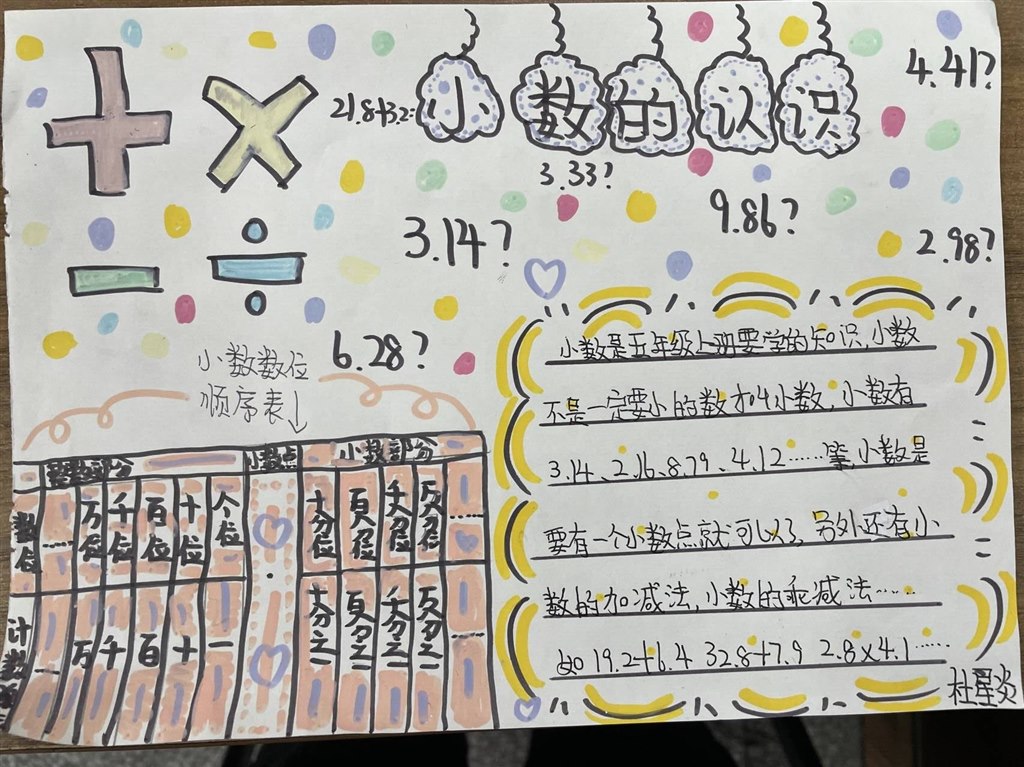 小数的认识
4.41?
21.8+3.2=
3.33?
9.86?
3.14?
2.98?
6.28?
小数数位
顺序表↓
整数部分 小数点 小数部分
数位 …… 万位 千位 百位 十位 个位 · 十分位 百分位 千分位 万分位 ……
万 千 百 十 一 十分之一 百分之一 千分之一 万分之一 ……
小数是五年级上册要学的知识,小数
不是一定要小的数才叫小数,小数有
3.14、2.16、8.79、4.12……等,小数是
要有一个小数点就可以了,另外还有小
数的加减法,小数的乘减法……
如19.2+6.4 32.8+7.9 2.8×4.1……
杜星炎